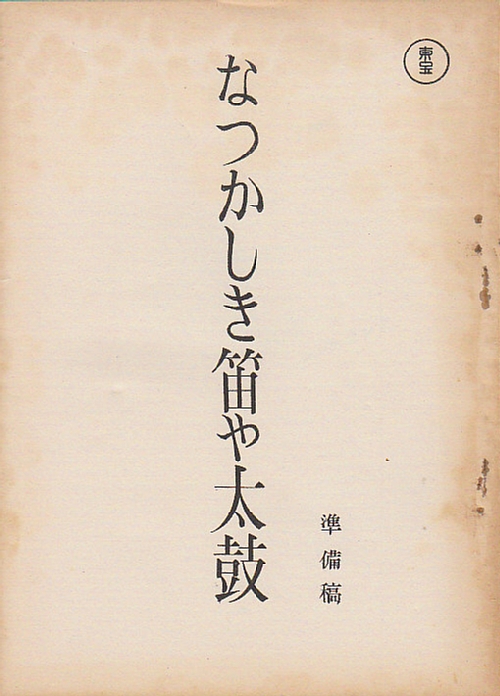 東宝
なつかしき笛や太鼓
準備稿